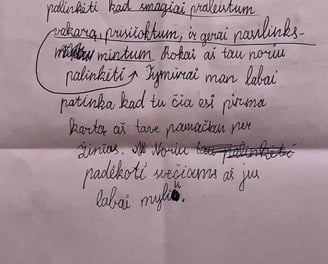 palinkėti kad smagiai praleistum
vakarą, prusišoktum, ir gerai pasilinks-
mintum Rokai aš tau noriu
palinkėti → Tymirai man labai
patinka kad tu čia esi pirma
karta aš tave pamačiau per
žinias. Noriu
padėkoti svečiams aš jus
labai myliu.